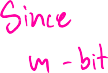 Since
m-bit